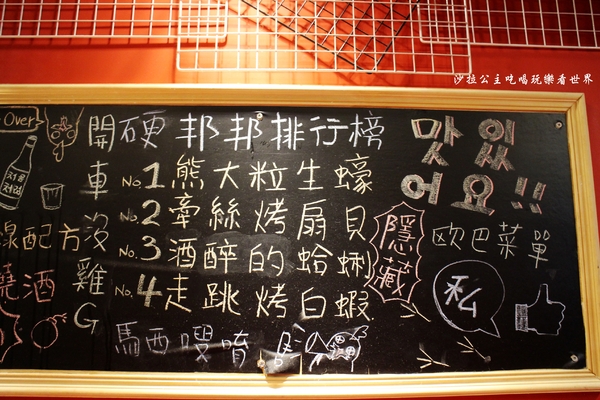 沙拉公主吃喝玩樂看世界
Over
처음처럼
開硬邦邦排行榜
車沒雞G
No.1熊大粒生蠔
No.2牽絲烤扇貝
No.3酒醉的蛤蜊
No.4走跳烤白蝦
馬西嗄嗨
配方
燒酒
맛있
어요!!
隱藏
歐巴菜單
私